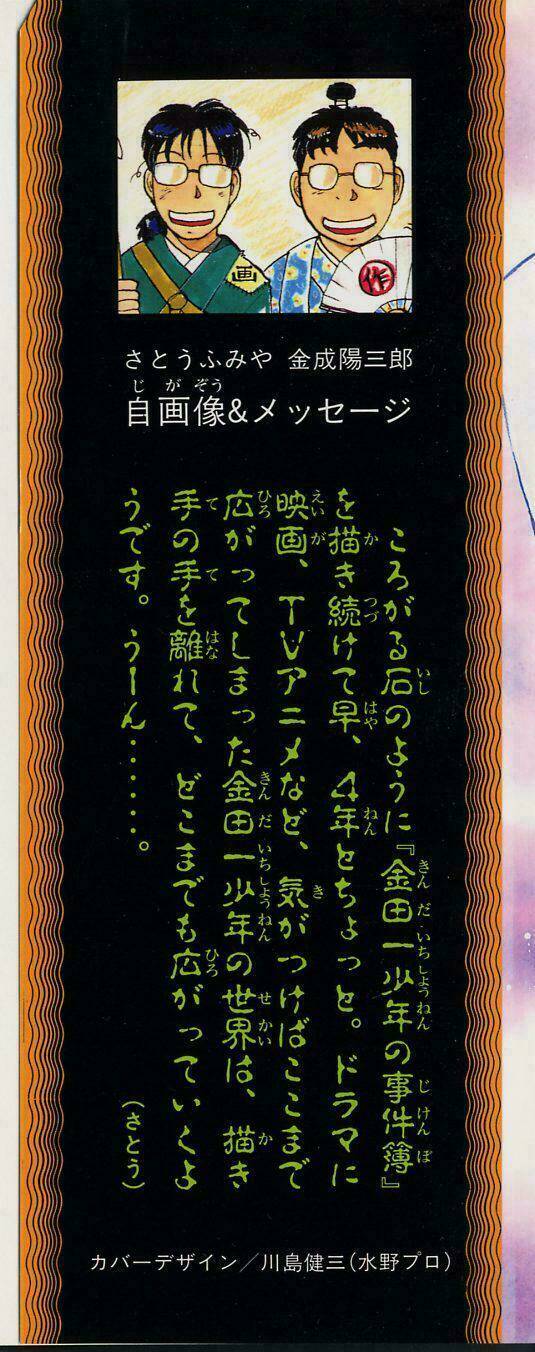 画
作
さとうふみや 金成陽三郎
自画像&メッセージ
ころがる石のように『金田一少年の事件簿』
を描き続けて早、4年とちょっと。ドラマに
映画、TVアニメなど、気がつけばここまで
広がってしまった金田一少年の世界は、描き
手の手を離れて、どこまでも広がっていくよ
うです。うーん……。
(さとう)
カバーデザイン/川島健三(水野プロ)